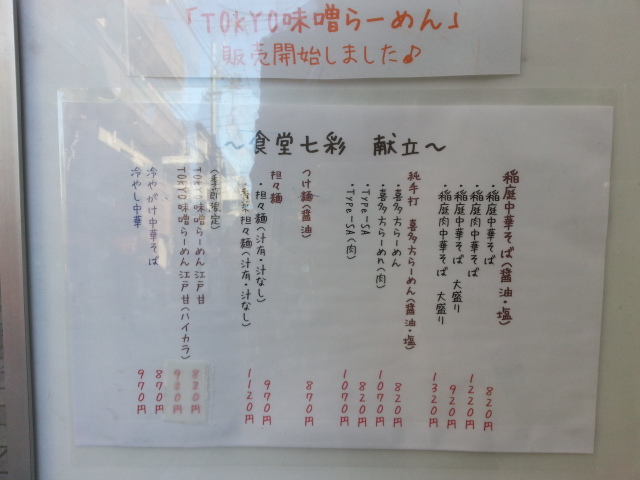 「TOKYO味噌らーめん」
販売開始しました♪
～食堂七彩 献立～
稲庭中華そば(醤油・塩)
・稲庭中華そば 820円
・稲庭肉中華そば 1220円
・稲庭中華そば 大盛り 920円
・稲庭肉中華そば 大盛り 1320円
純手打 喜多方らーめん(醤油・塩)
・喜多方らーめん 820円
・喜多方らーめん(肉) 1070円
・Type-SA 820円
・Type-SA(肉) 1070円
つけ麺(醤油) 870円
担々麺
・担々麺(汁有・汁なし) 970円
担々麺(汁有・汁なし) 1120円
(季節限定)
TOKYO味噌らーめん 江戸甘 820円
TOKYO味噌らーめん 江戸甘(ハイカラ)
冷やがけ中華そば 870円
冷やし中華 970円